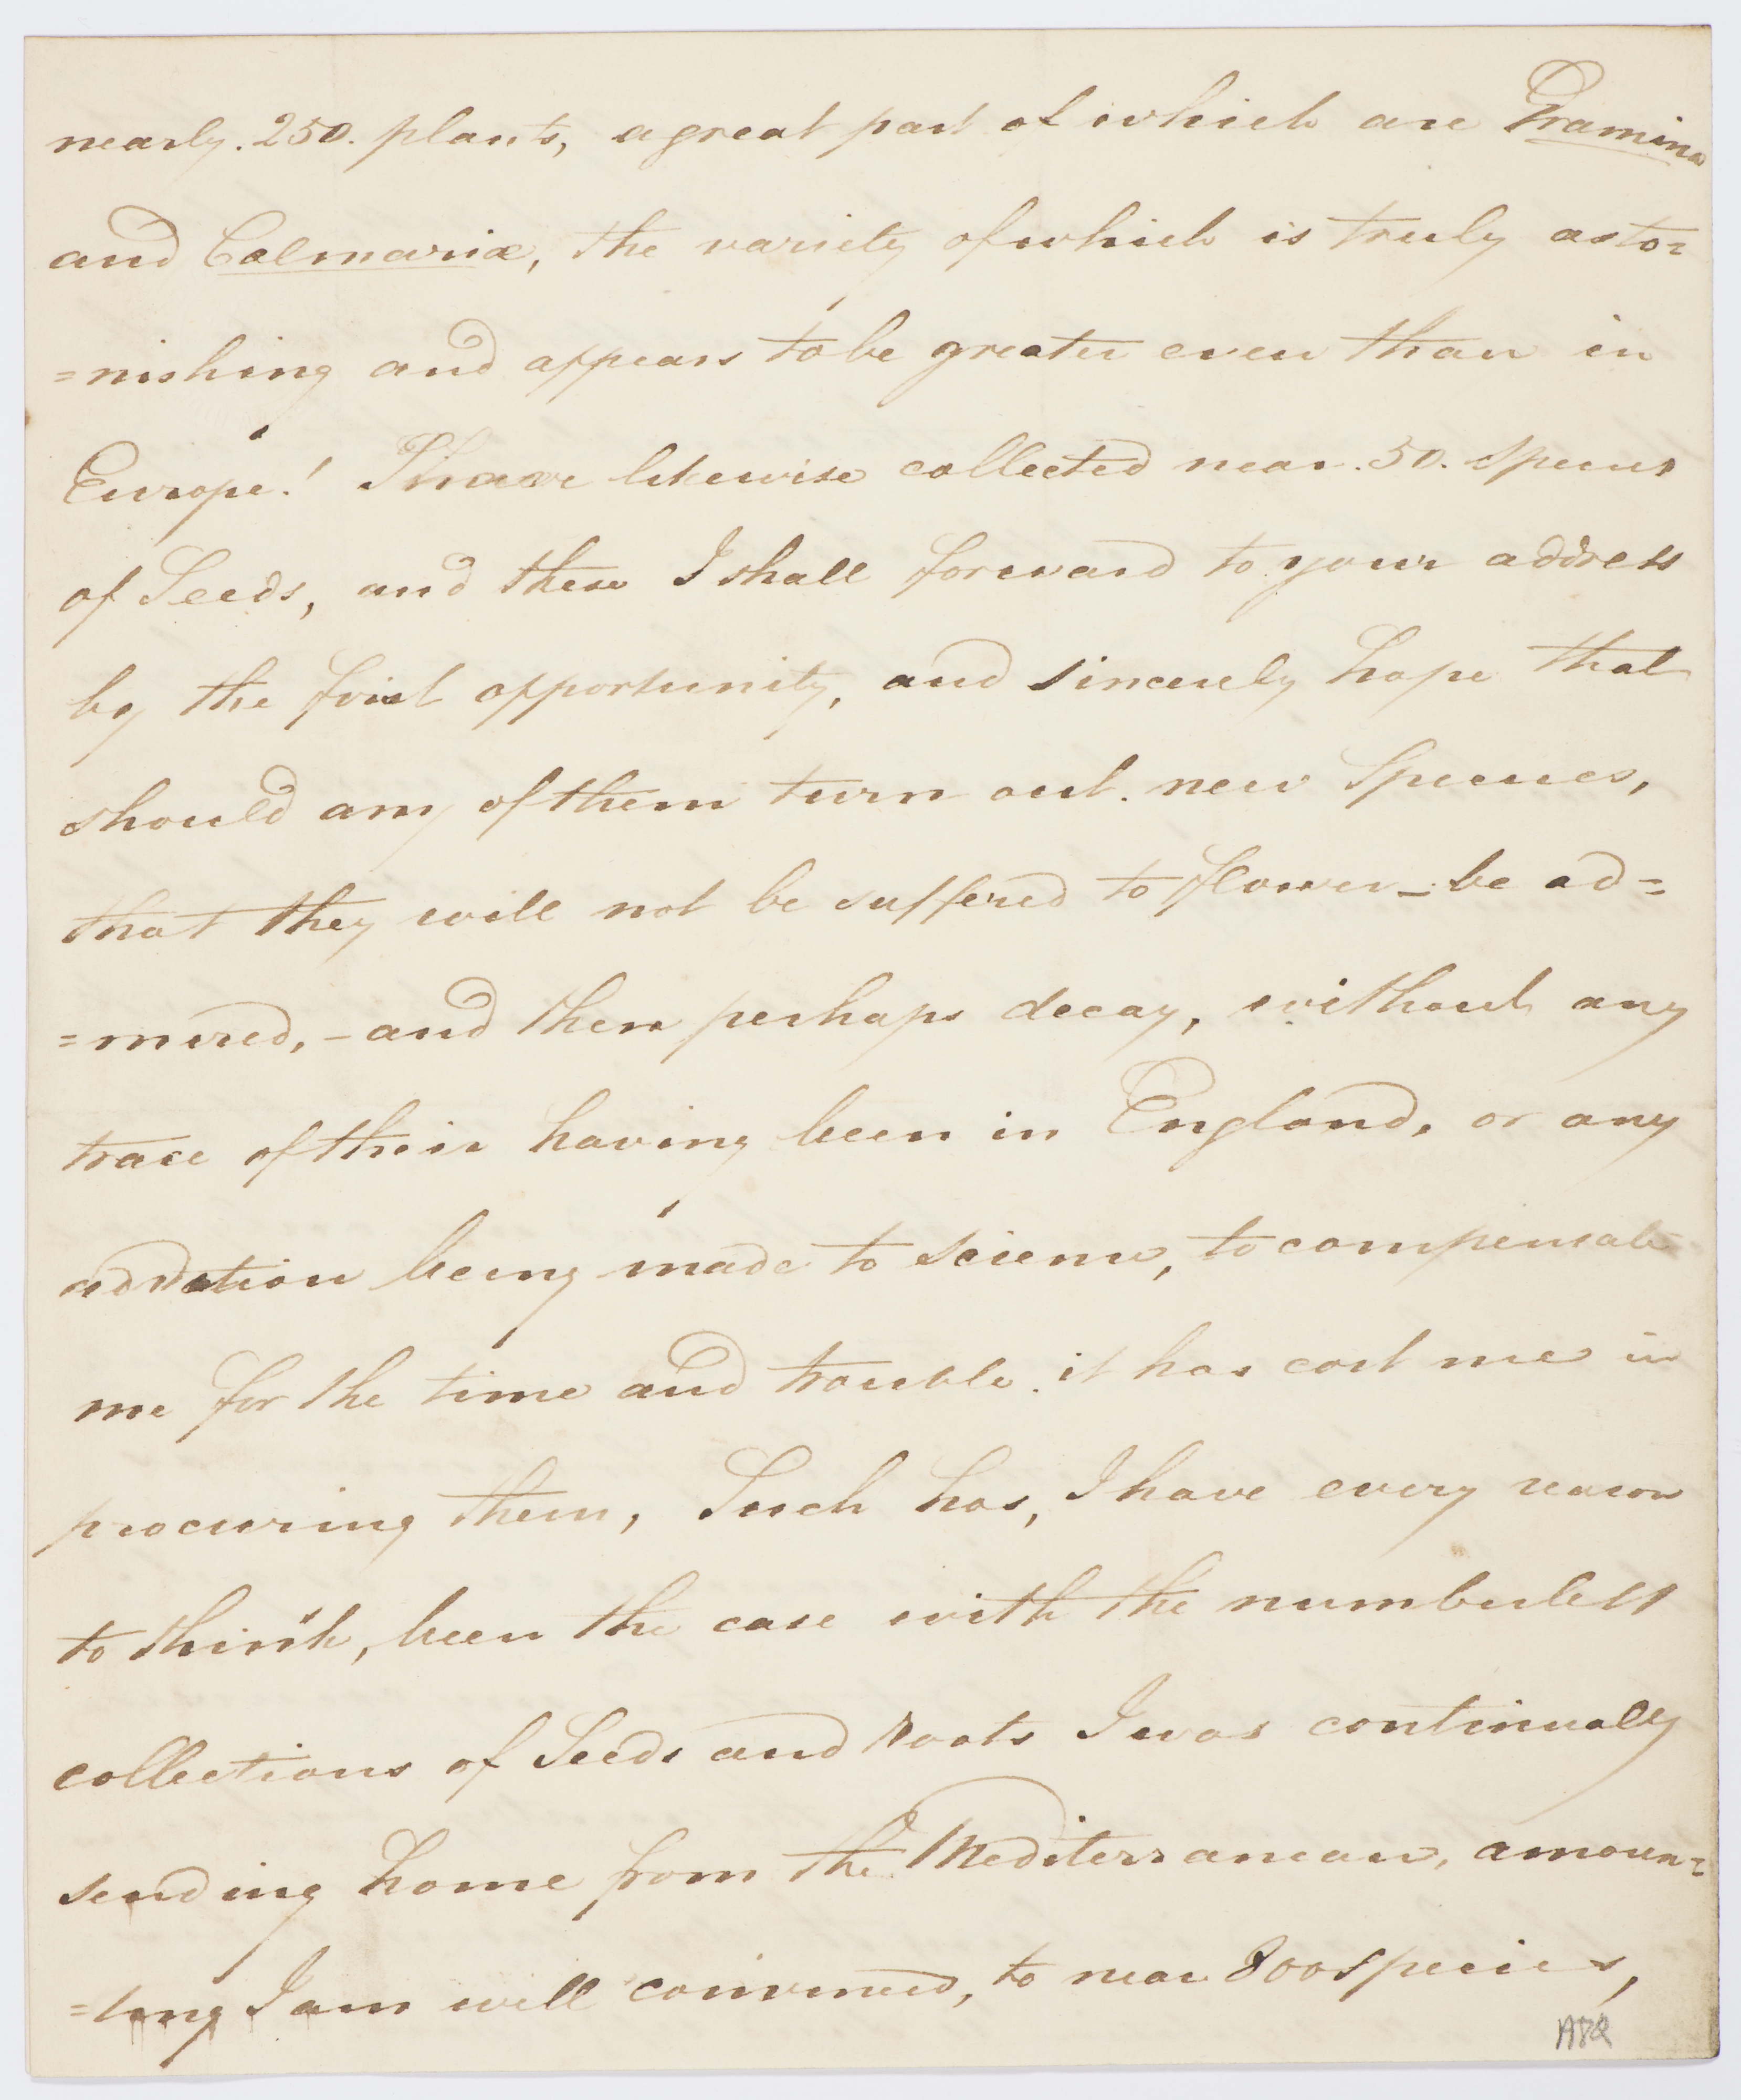 nearly. 250. plants, a great part of which are Gramina
and Calmariæ, the variety of which is truly asto=
=nishing and appears to be greater even than in
Europe! I have likewise collected near. 50. Species
of Seeds, and these I shall forward to your address
by the first opportunity, and sincerely hope that
should any of them turn out. new Species,
that they will not be suffered to flower – be ad=
=mired, – and then perhaps decay, without any
trace of their having been in England, or any
addition being made to science, to compensate
me for the time and trouble it has cost me in
procuring them, Such has, I have every reason
to think, been the case with the numberless
collections of Seeds and roots I was continually
sending home from the Mediterranean, amoun=
=ting I am well convinced, to near 800 species,